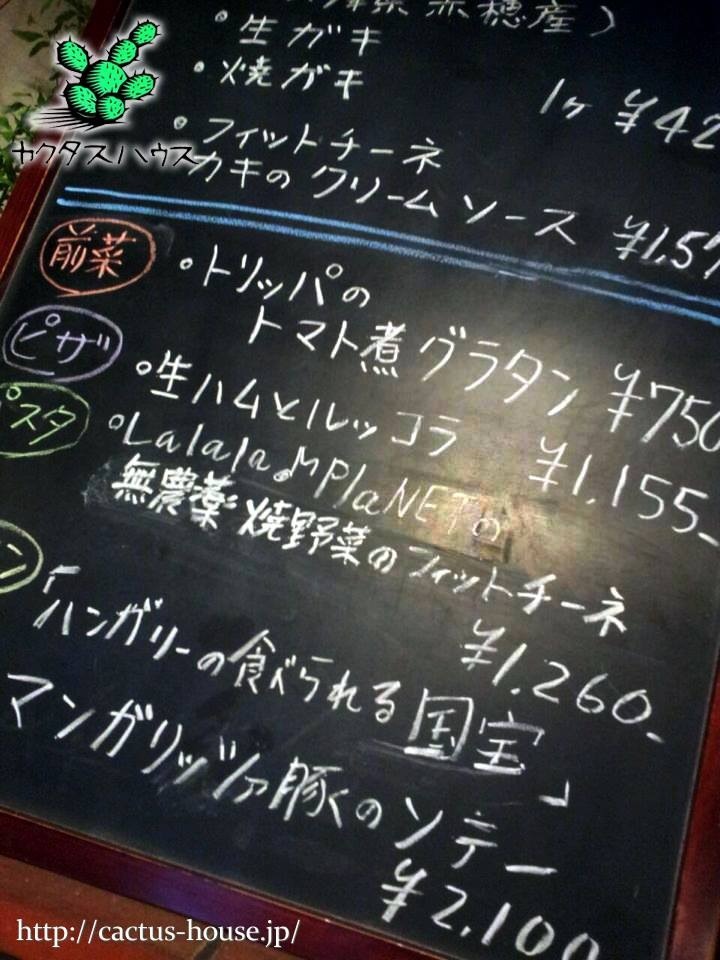 赤穂産）
・生ガキ
・焼ガキ
1ヶ ¥42
・フィットチーネ
カキのクリームソース ¥1,57
カクタスハウス
前菜
・トリッパの
トマト煮グラタン ¥750
ピザ
・生ハムとルッコラ ¥1,155-
パスタ
・Lalala♪MPlaNETの
無農薬 焼野菜のフィットチーネ
¥1,260-
ン
「ハンガリーの食べられる国宝」
マンガリッツァ豚くのソテー
¥2,100
http://cactus-house.jp/